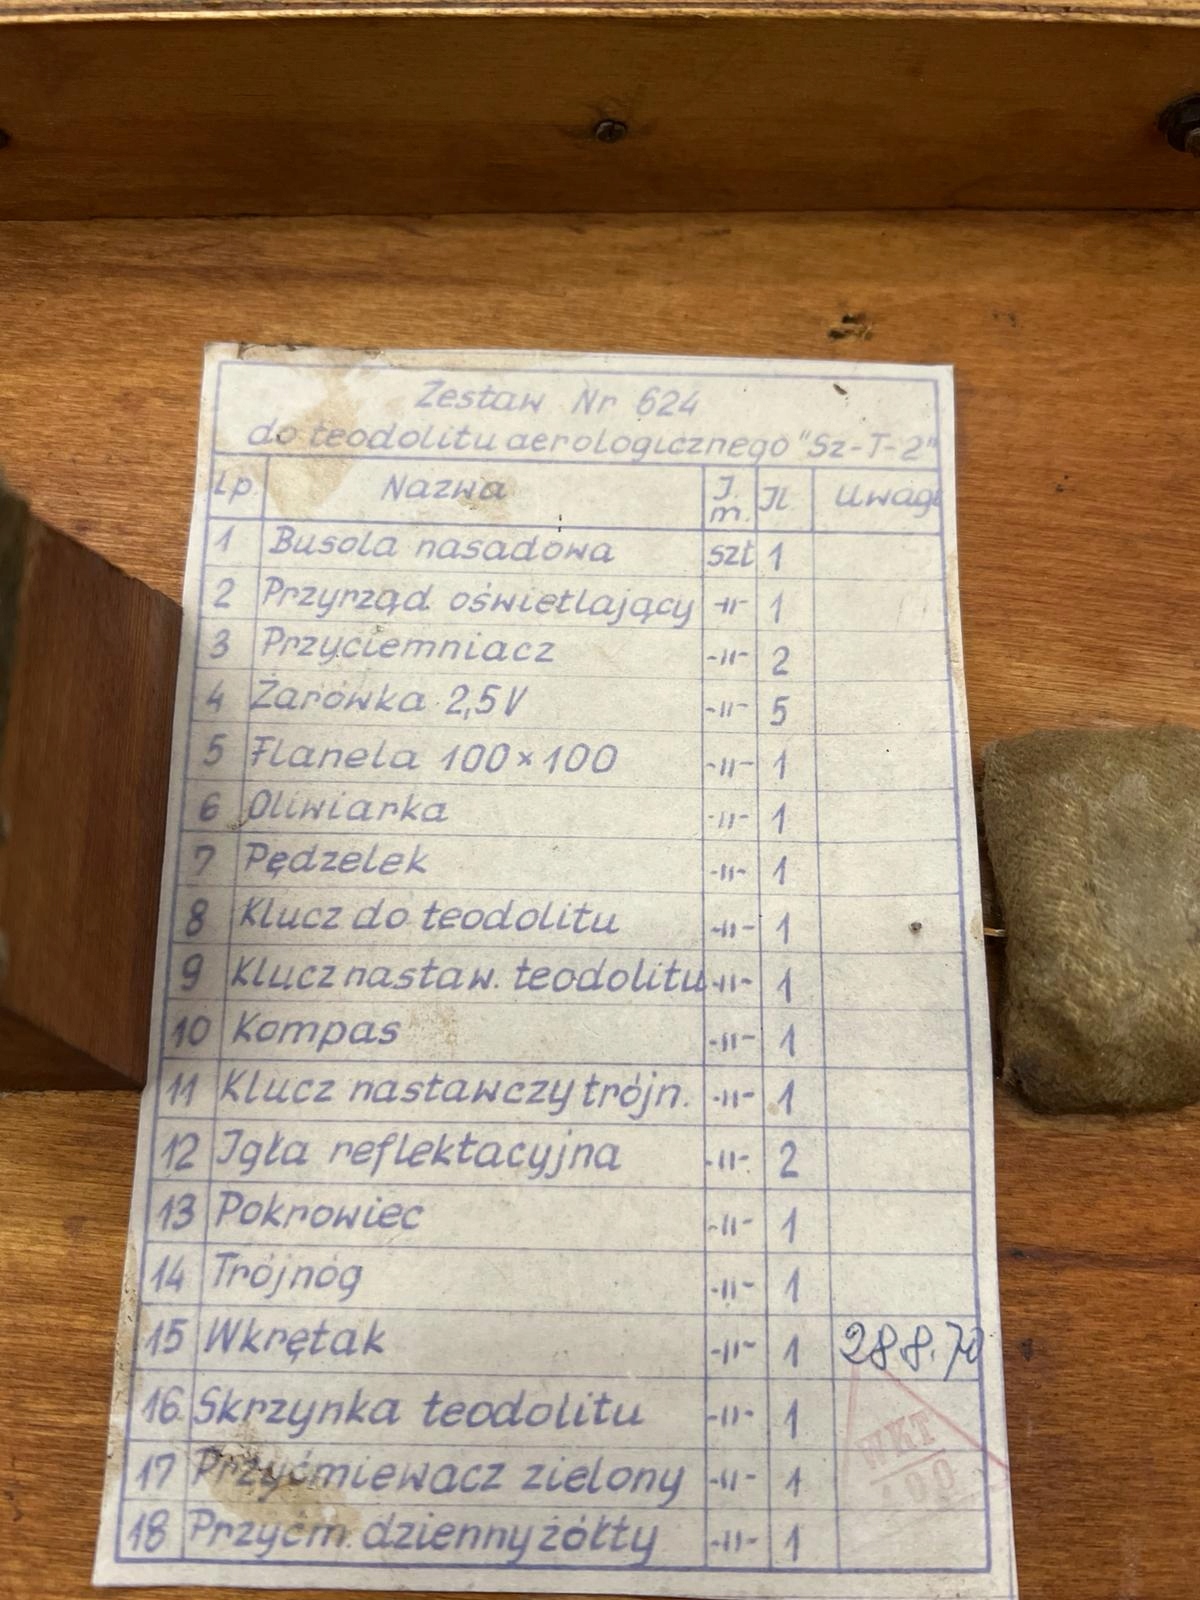 Zestaw Nr 624
do teodolitu aerologicznego "Sz-T-2"
Lp. Nazwa J. m. Jl Uwagi
1 Busola nasadowa szt 1
2 Przyrząd oświetlający -11- 1
3 Przyciemniacz -11- 2
4 Żarówka 2,5V -11- 5
5 Flanela 100×100 -11- 1
6 Oliwiarka -11- 1
7 Pędzelek -11- 1
8 Klucz do teodolitu -11- 1
9 Klucz nastaw. teodolitu -11- 1
10 Kompas -11- 1
11 Klucz nastawczy trójn. -11- 1
12 Jgła reflektacyjna -11- 2
13 Pokrowiec -11- 1
14 Trójnóg -11- 1
15 Wkrętak -11- 1 28.8.70
16. Skrzynka teodolitu -11- 1
17 Przyćmiewacz zielony -11- 1
18 Przyćm. dzienny żółty -11- 1
WKT
00